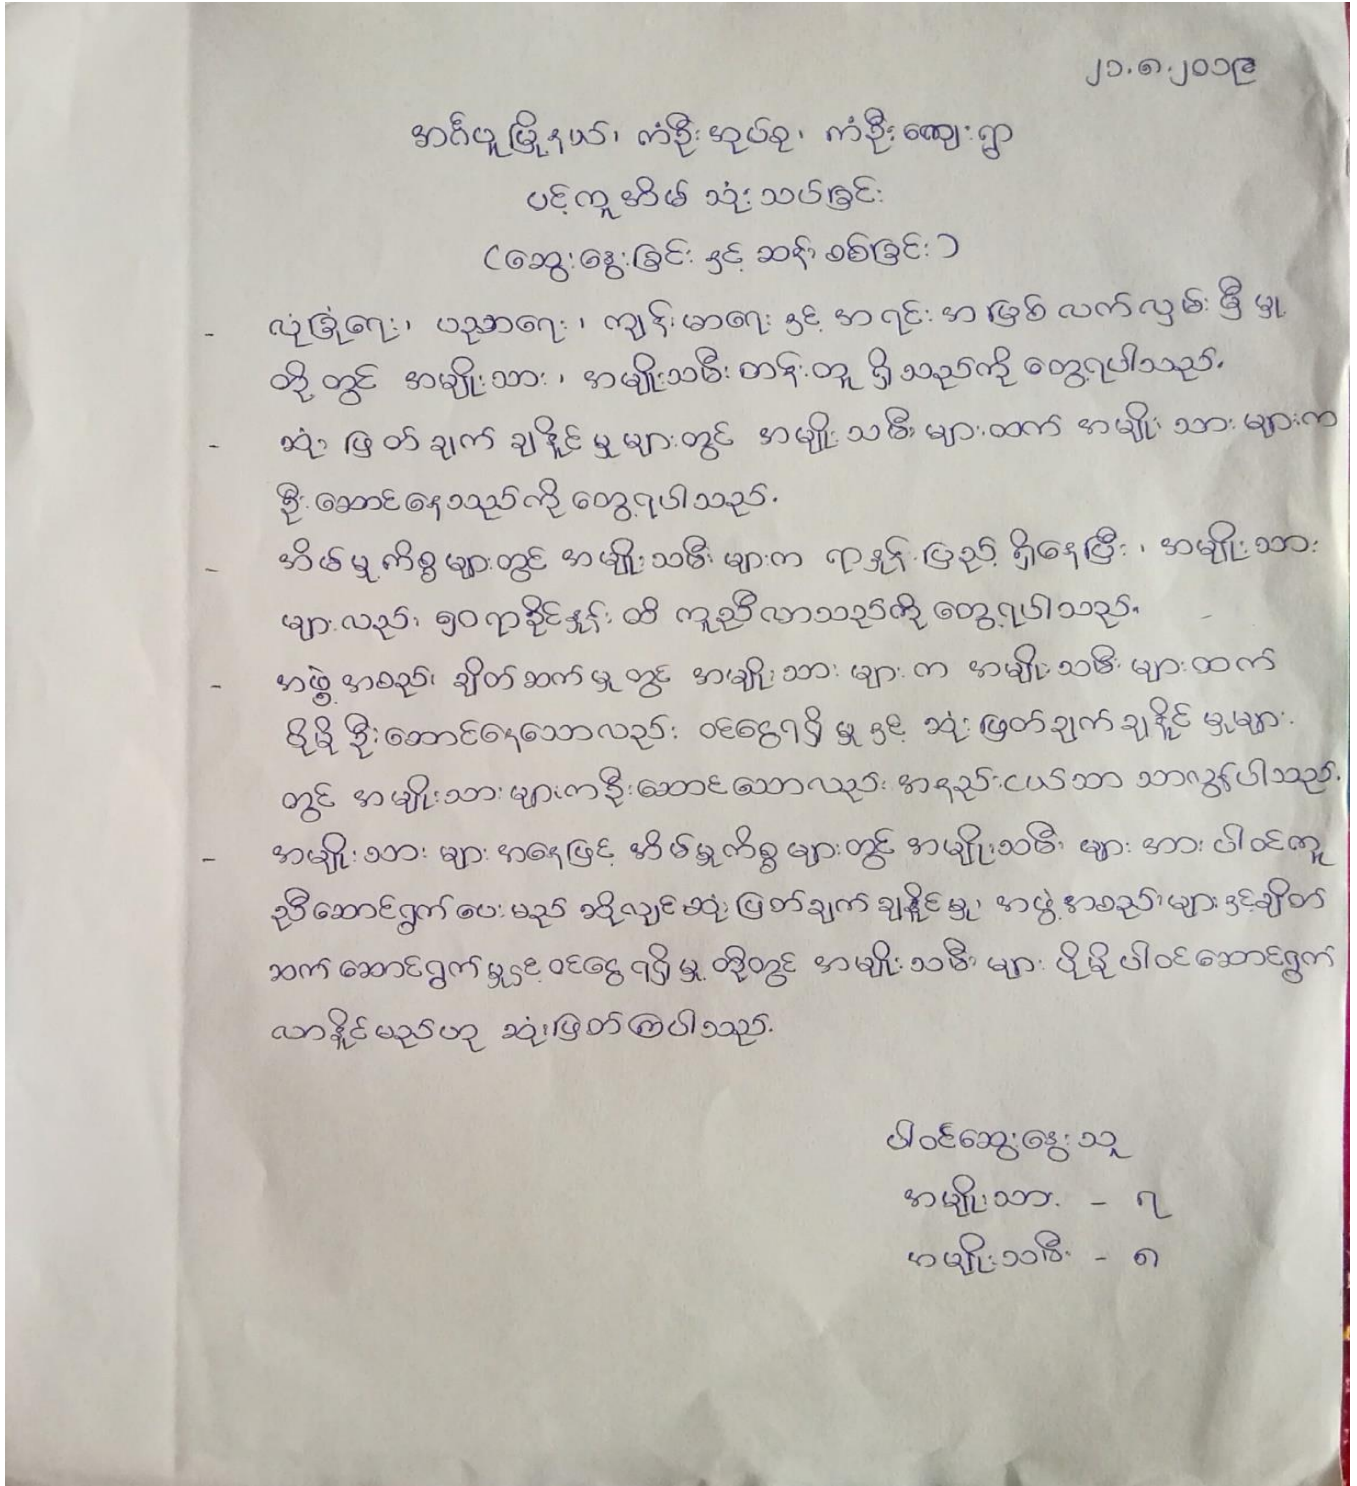 ၂၁.၈.၂၀၁၉
အင်္ဂပူမြို့နယ်၊ ကံဦးအုပ်စု၊ ကံဦးကျေးရွာ
ပင့်ကူအိမ် သုံးသပ်ခြင်း
(ဆွေးနွေးခြင်း နှင့် ဆန်းစစ်ခြင်း)
- လုံခြုံရေး၊ ပညာရေး၊ ကျန်းမာရေး နှင့် အရင်းအမြစ် လက်လှမ်းမှီမှု
တို့တွင် အမျိုးသား၊ အမျိုးသမီး တန်းတူ ရှိသည်ကို တွေ့ရပါသည်။
- ဆုံးဖြတ်ချက် ချနိုင်မှုများတွင် အမျိုးသမီးများထက် အမျိုးသားများက
ဦးဆောင်နေသည်ကို တွေ့ရပါသည်။
- အိမ်မှုကိစ္စများတွင် အမျိုးသမီးများက ရာနှုန်းပြည့် ရှိနေပြီး၊ အမျိုးသား
များလည်း ၅၀ ရာခိုင်နှုန်းထိ ကူညီလာသည်ကို တွေ့ရပါသည်။
- အဖွဲ့အစည်း ချိတ်ဆက်မှုတွင် အမျိုးသားများက အမျိုးသမီးများထက်
ပိုမိုဦးဆောင်နေသော်လည်း ဝင်ငွေရရှိမှု နှင့် ဆုံးဖြတ်ချက်ချနိုင်မှုများ
တွင် အမျိုးသားများကဦးဆောင်သော်လည်း အနည်းငယ်သာ သာလွန်ပါသည်။
- အမျိုးသားများအနေဖြင့် အိမ်မှုကိစ္စများတွင် အမျိုးသမီးများအား ပါဝင်ကူ
ညီဆောင်ရွက်ပေးမည် ဆိုလျှင် ဆုံးဖြတ်ချက်ချနိုင်မှု၊ အဖွဲ့အစည်းများနှင့်ချိတ်
ဆက်ဆောင်ရွက်မှုနှင့် ဝင်ငွေရရှိမှု တို့တွင် အမျိုးသမီးများ ပိုမိုပါဝင်ဆောင်ရွက်
လာနိုင်မည်ဟု ဆုံးဖြတ်ကြပါသည်။
ပါဝင်ဆွေးနွေးသူ
အမျိုးသား - ၇
အမျိုးသမီး - ၈